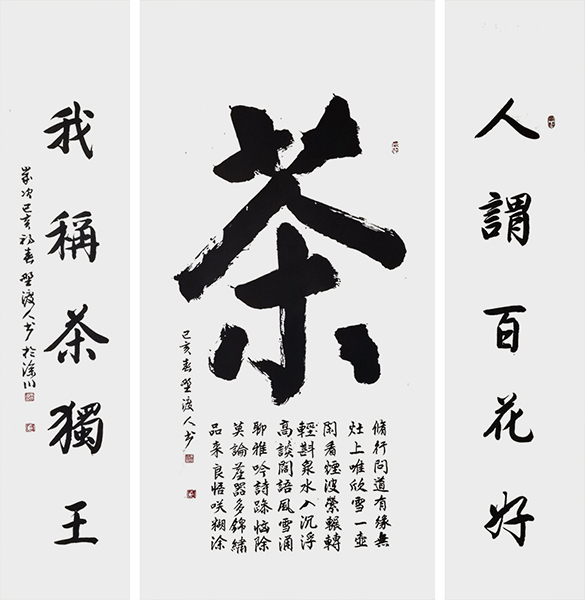 人謂百花好
茶
脩行問道有緣無
灶上唯欣雪一壺
閑看煙波縈輾轉
輕斟泉水入沉浮
高談闊語風雪涌
聊雅吟詩疎惱除
莫論器多錦繡
品来良悟咲糊涂
己亥春野渡人书
我稱茶獨王
歲次己亥初春野渡人书於涂川